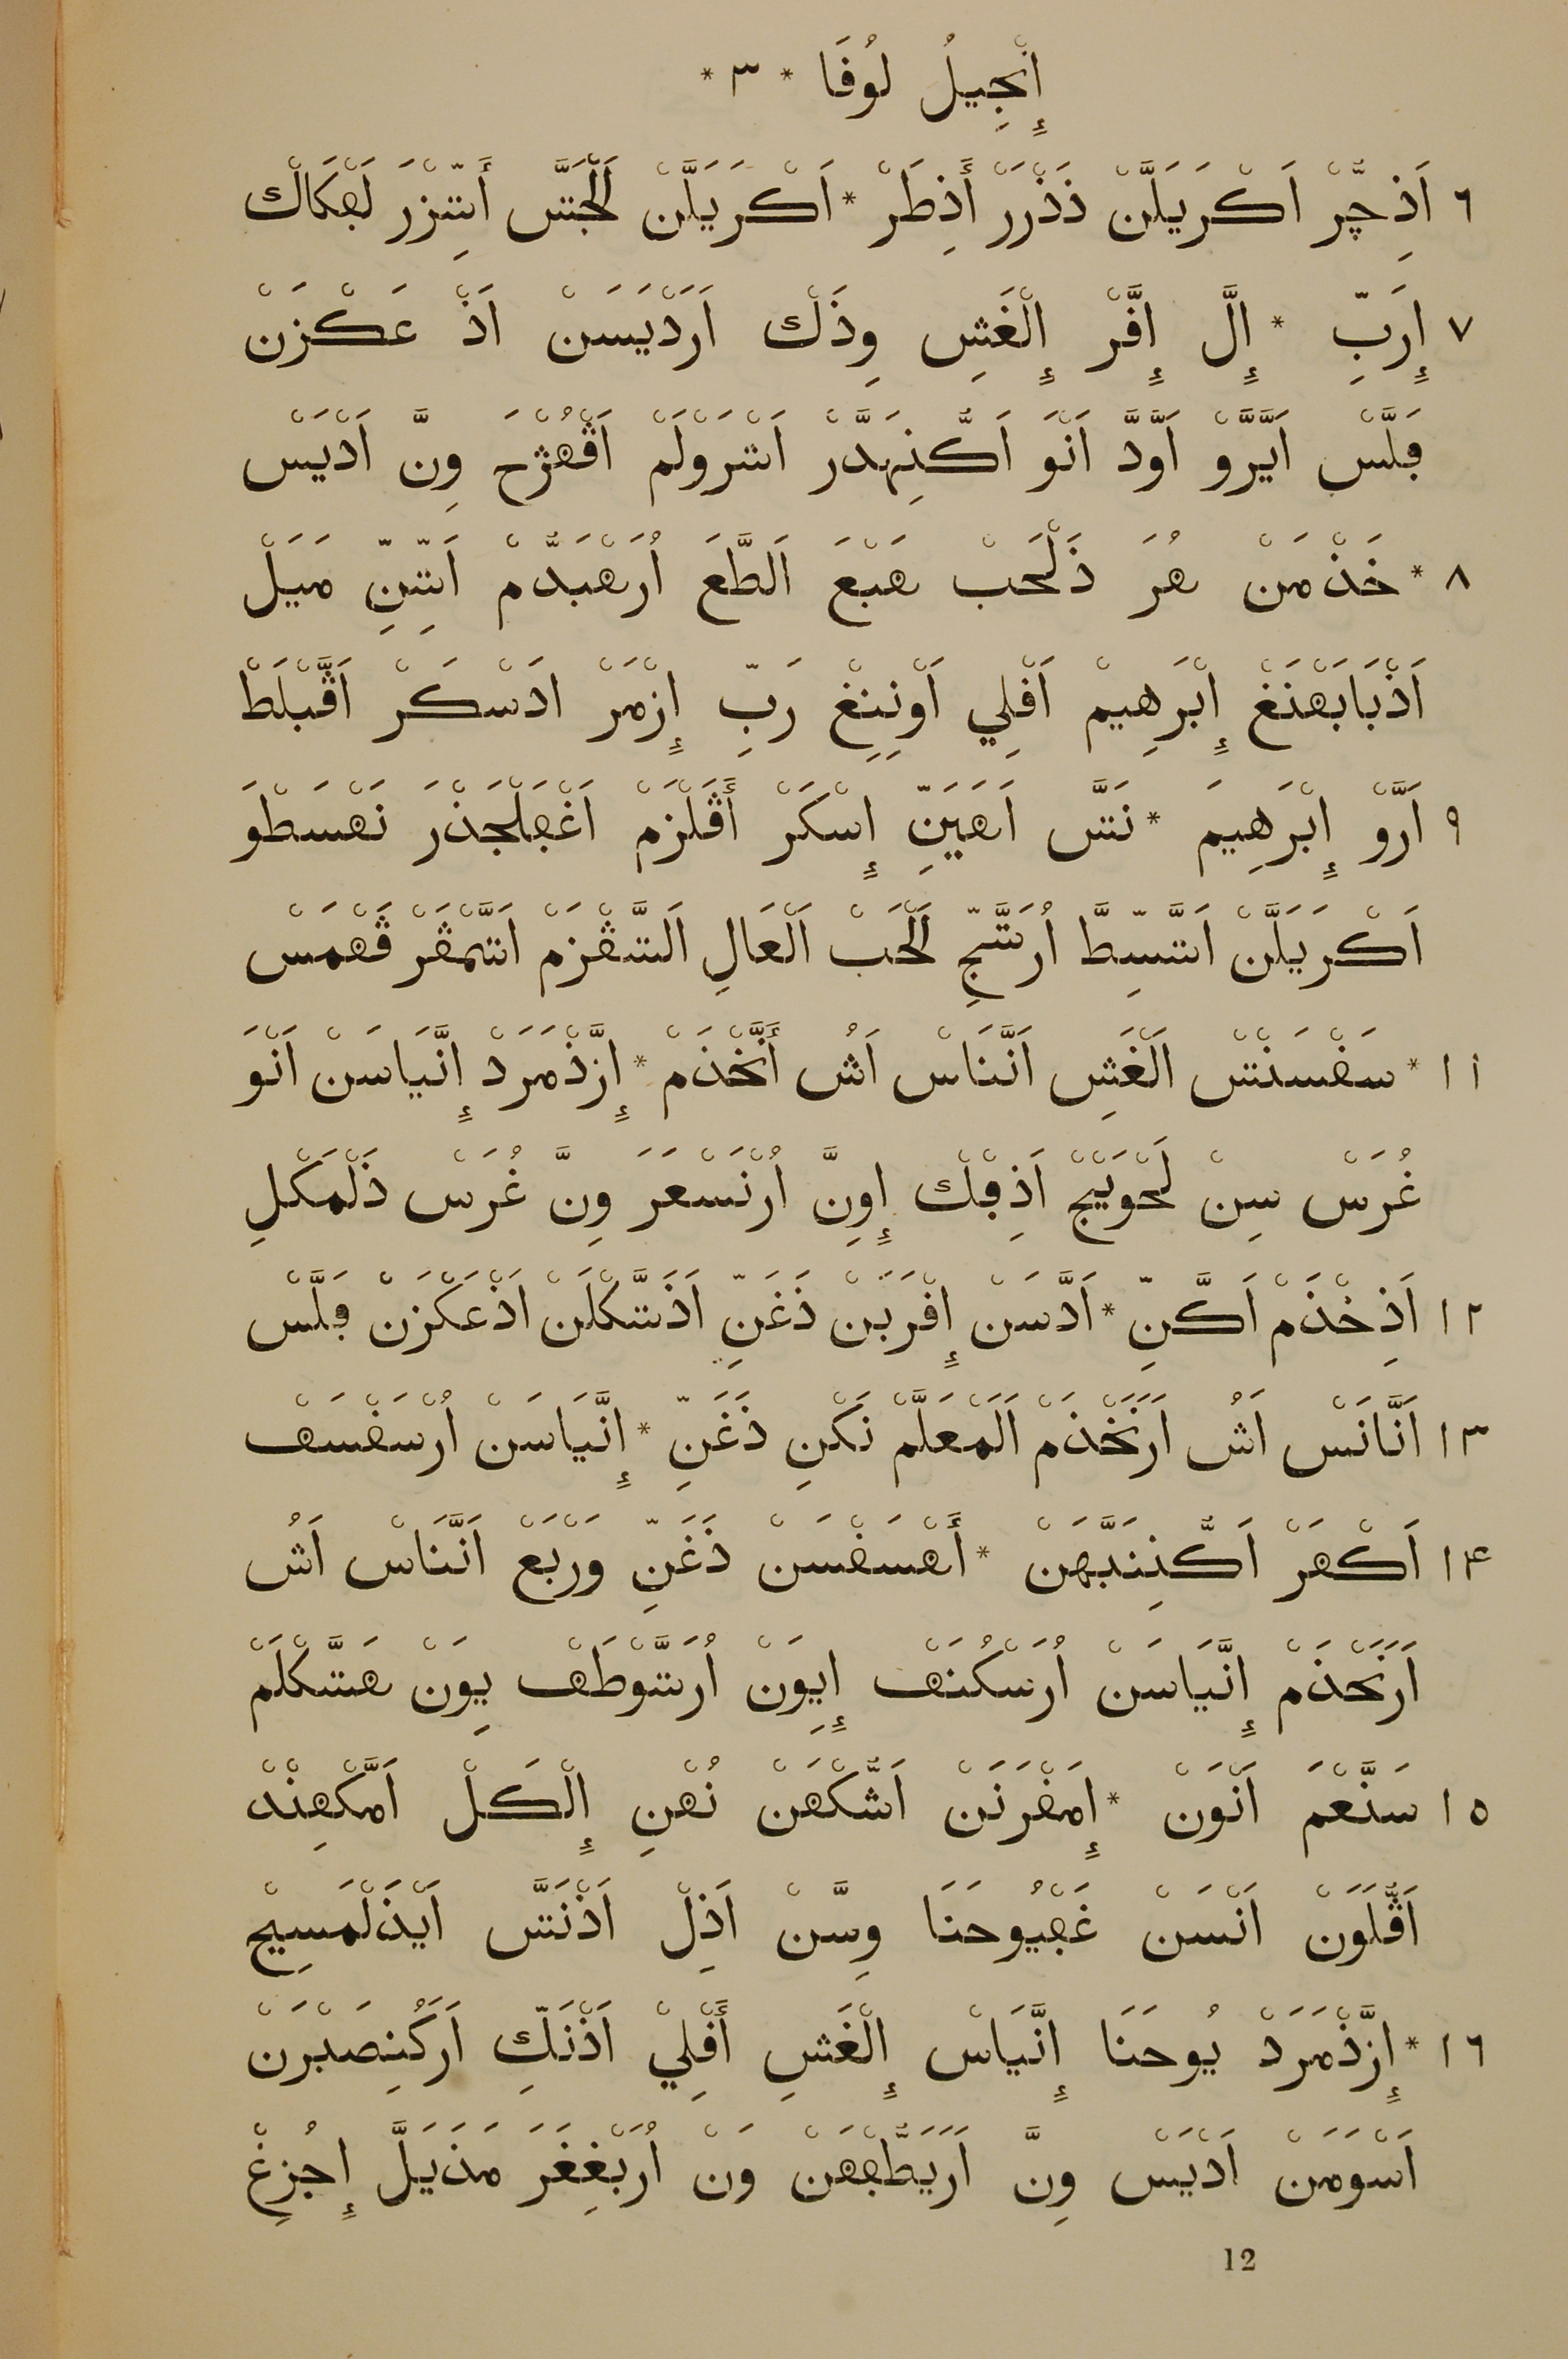 إِنْجِيلُ لُوفَا * ٣ *
٦ اَذِچَّرْ اَكْرَيَلَّنْ ذَذْرَرْ أَذِطَرْ * اَكْرَيَلَّنْ لَّجْتَّسْ أَتِّزْرَ لَهْكَالْك
٧ إِرَبِّ * إِلَّ إِفَّرْ إِلْغَشِ وِذَلْك اَرَدْيَسَنْ اَذْ عَكْزَنْ
فِلَّسْ اَيَّرَّوْ اَوَّدَّ اَنْوَ اَكُّنِهَدَّرْ اَشْرَوْلَمْ اَڤْهُرْحَ وِنَّ اَدْيَسْ
٨ * خَذْمَنْ هُرَ ذَلْحَبْ هَبْعَ اَلطَّعَ اُرَهْبَدُّمْ اَتِّنِّ مَيَلْ
اَذْبَابَهْنَغْ إِبْرَهِيمْ اَفْلِي اَوْنِنِغْ رَبِّ إِزْمَرْ ادَسْكَرْ اَڤَّبْلَطْ
٩ اَرَّوْ إِبْرَهِيمَ * نَتَّسْ اَهَيَنِّ إِسْكَرْ أَڤَلْزَمْ اَغْبَلْجَذْرَ نَهْسَطْوَ
اَكْرَيَلَّنْ اَتَّسِّطَّ اُرَتَّجِّ لَلْحَبْ اَلْعَالِ اَلتَّڤْزَمْ اَتَّمْڤَرْ ڤَهْمَسْ
١١ * سَفْسَنْتْسْ اَلْغَشِ اَنَّنَاسْ اَشُ أَنَّخْذَمْ * إِزَّذْمَرَدْ إِنَّيَاسَنْ اَنْوَ
غُرَسْ سِنْ لَحْوَيْجْ اَذِفْك إِوِنَّ اُرْنَسْعَرَ وِنَّ غُرَسْ ذَلْمَكْلِ
١٢ اَذِخْذَمْ اَكَّنِّ * اَدَّسَنْ إِفْرَبَنْ ذَغَنِّ اَذَتَّكْلَنْ اَذْعَكْزَنْ فِلَّسْ
١٣ اَنَّانَسْ اَشُ اَرَنَخْذَمْ اَلَمَعَلَّمْ نَكْنِ ذَغَنِّ * إِنَّيَاسَنْ اُرْسَفْسَهْ
١۴ اَكْهَرْ اَكُّنِنَبَّهَنْ * أَهْسَفْسَنْ ذَغَنِّ وَرْبَعْ اَنَّنَاسْ اَشُ
اَرَنَخْذَمْ إِنَّيَاسَنْ اُرَسْكُنَهْ إِيِوَنْ اُرَتَّوْطَهْ يِوَنْ هَتَّكْلَمْ
١٥ سَنَّعْمَ اَنْوَنْ * إِمَفْرَنَنْ اَشُّكْهَنْ نُهْنِ إِلْكَلْ اَمَّكْهِنْدْ
اَڤُّلَوَنْ اَنْسَنْ غَفْيُوحَنَا وِسَّنْ اَذِلْ اَذْنَتَّسْ اَيْذَلْمَسِيحْ
١٦ * إِزَّذْمَرَدْ يُوحَنَا إِنَّيَاسْ إِلْغَشِ أَفْلِيْ اَذْنَكِّ اَرَكُنِصَبْرَنْ
اَسْوَمَنْ اَدْيَسْ وِنَّ اَرَيَطُّبْهَنْ وَنْ اُرَبْغِغَرَ مَذَيَلَّ إِجُزِغْ
12